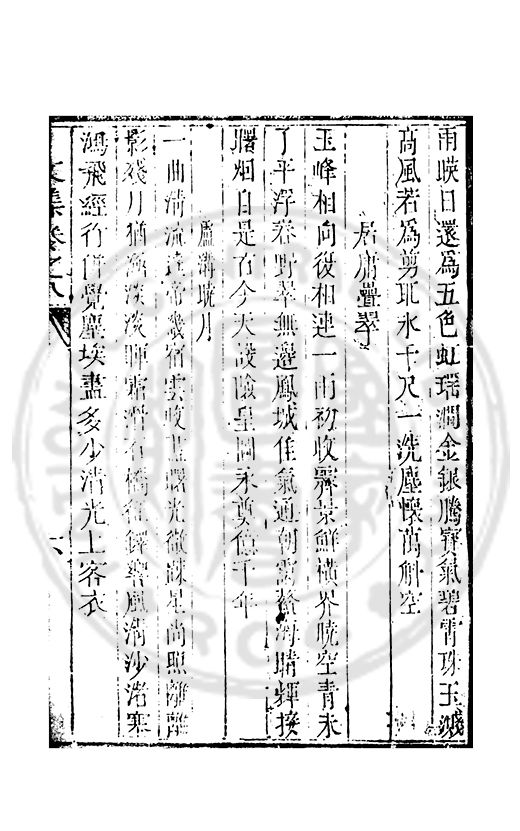 雨暎日還為五色虹瑶澗金銀騰寳氣碧霄珠玉濺
高風若為剪取氷千尺一洗塵懷萬斛空
居庸疊翠
玉峰相向復相連一雨初收霽景鮮横界曉空青未
了平浮春野翠無邊鳳城佳氣通朝靄鰲海晴輝接
曙烟自是古今天設險皇圖永奠億千年
盧溝曉月
一曲清流遶帝畿宿雲收盡曙光微疎星尚照離離
影殘月猶涵淡淡暉霜滑石橋征鐸響風清沙渚寒
鴻飛經行併覺塵埃盡多少清光上客衣
文集卷之八
六